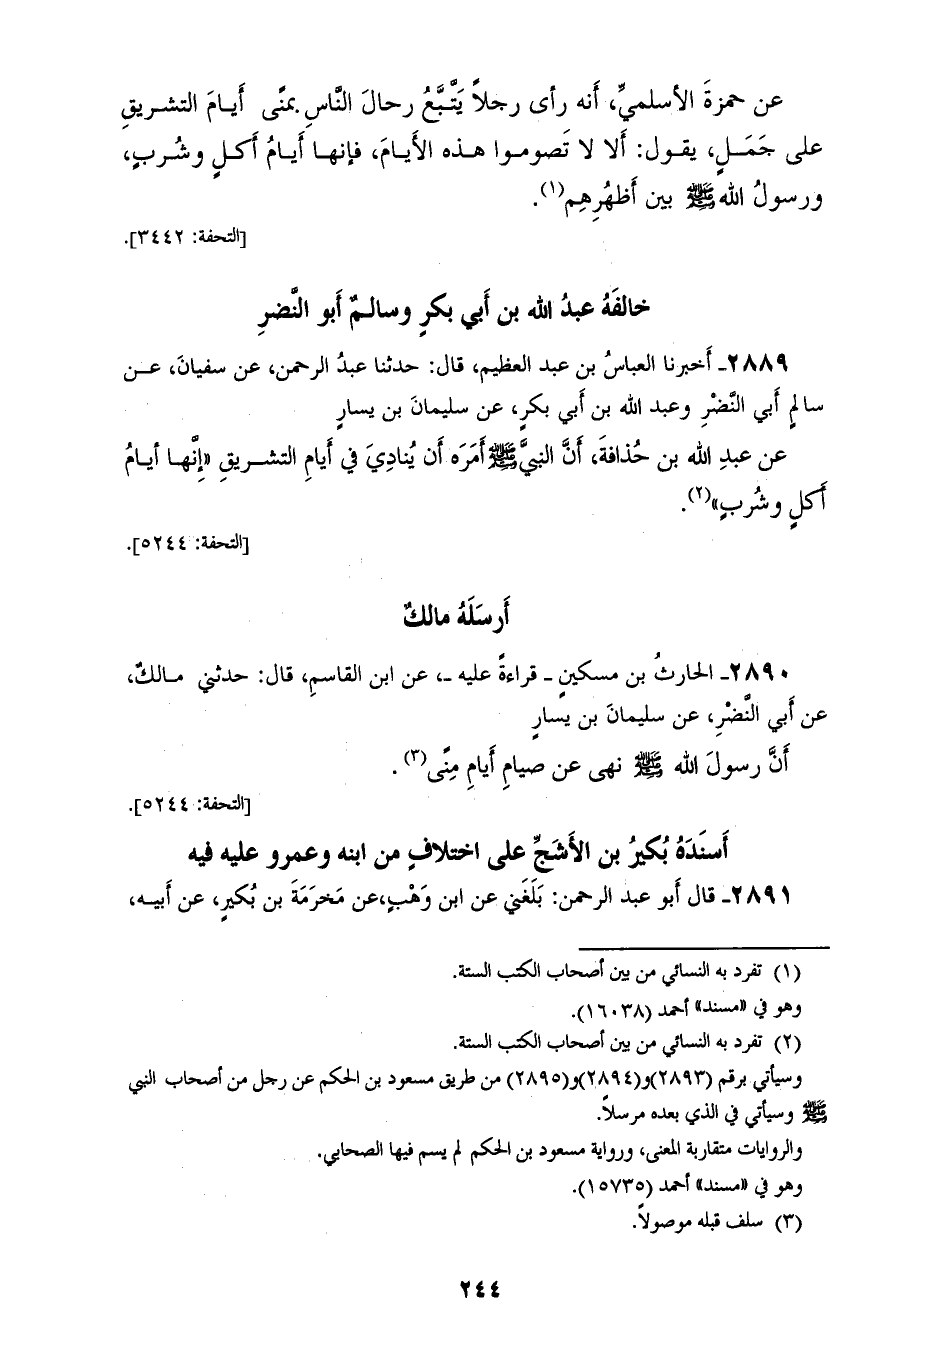 عن حمزةَ الأسلميِّ، أَنه رأى رجلاً يَتَّبَّعُ رحالَ النَّاسِ بمنًى أَيـامَ التشـريقِ
على جَمَـلٍ، يقـول: أَلا لا تَصومـوا هـذه الأَيـامَ، فإنهـا أَيـامُ أكـلٍ وشُـربٍ،
ورسولُ الله ﷺ بين أَظهُرِهِم(١).
[التحفة: ٣٤٤٢].
خالفَهُ عبدُ الله بن أَبي بكرٍ وسالـمٌ أَبو النَّضرِ
٢٨٨٩ـ أَخبرنا العباسُ بن عبد العظيم، قال: حدثنا عبدُ الرحمن، عن سفيانَ، عـن
سالمٍ أَبي النَّضْرِ وعبد الله بن أَبي بكرٍ، عن سليمانَ بن يسارٍ
عن عبدِ الله بن حُذافةَ، أَنَّ النبيَّ ﷺ أَمَرَه أَن يُنادِيَ في أَيامِ التشـريقِ «إِنَّهـا أَيـامُ
أَكلٍ وشُربٍ»(٢).
[التحفة: ٥٢٤٤].
أَرسَلَهُ مالكٌ
٢٨٩٠ـ الحارثُ بن مسكينٍ ـ قراءةً عليه ـ، عن ابن القاسمِ، قال: حدثني مـالكٌ،
عن أَبي النَّضْرِ، عن سليمانَ بن يسارٍ
أَنَّ رسولَ الله ﷺ نهى عن صيامِ أَيامِ مِنًى(٣).
[التحفة: ٥٢٤٤].
أَسنَدَهُ بُكيرُ بن الأَشجِّ على اختلافٍ من ابنه وعمرو عليه فيه
٢٨٩١ـ قال أَبو عبد الرحمن: بَلَغَني عن ابن وَهْبٍ، عن مَخرَمَةَ بن بُكيرٍ، عن أَبيـه،
(١) تفرد به النسائي من بين أصحاب الكتب الستة.
وهو في «مسند» أحمد (١٦٠٣٨).
(٢) تفرد به النسائي من بين أصحاب الكتب الستة.
وسيأتي برقم (٢٨٩٣) و(٢٨٩٤) و(٢٨٩٥) من طريق مسعود بن الحكم عن رجل من أصحاب النبي
ﷺ وسيأتي في الذي بعده مرسلاً.
والروايات متقاربة المعنى، ورواية مسعود بن الحكم لم يسم فيها الصحابي.
وهو في «مسند» أحمد (١٥٧٣٥).
(٣) سلف قبله موصولاً.
٢٤٤